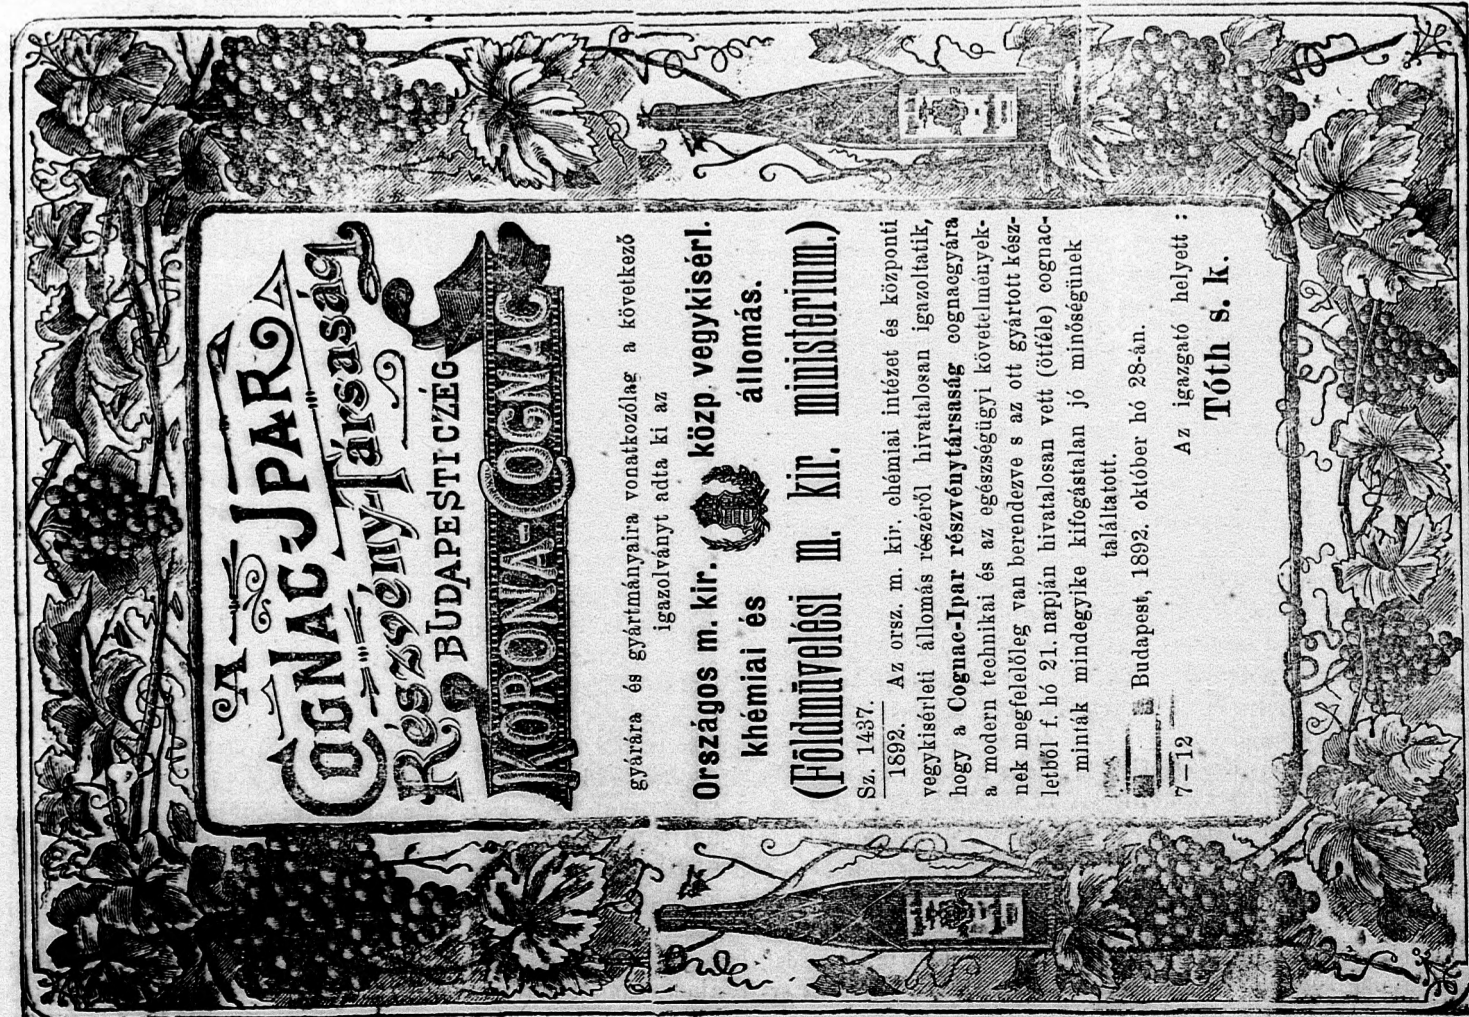 A
COGNAC-IPAR
Részvény-Társaság
BUDAPESTI CZÉG
KORONA-COGNAC
gyárára és gyártmányaira vonatkozólag a következő
igazolványt adta ki az
Országos m. kir. közp. vegykisérl.
khémiai és állomás.
(Földmüvelési m. kir. ministerium.)
Sz. 1437.
1892. Az orsz. m. kir. chémiai intézet és központi
vegykisérleti állomás részéről hivatalosan igazoltatik,
hogy a Cognac-Ipar részvénytársaság cognacgyára
a modern technikai és az egészségügyi követelmények-
nek megfelelőleg van berendezve s az ott gyártott kész-
letből f. hó 21. napján hivatalosan vett (ötféle) cognac-
minták mindegyike kifogástalan jó minőségünek
találtatott.
Budapest, 1892. október hó 28-án.
7–12 Az igazgató helyett :
Tóth s. k.